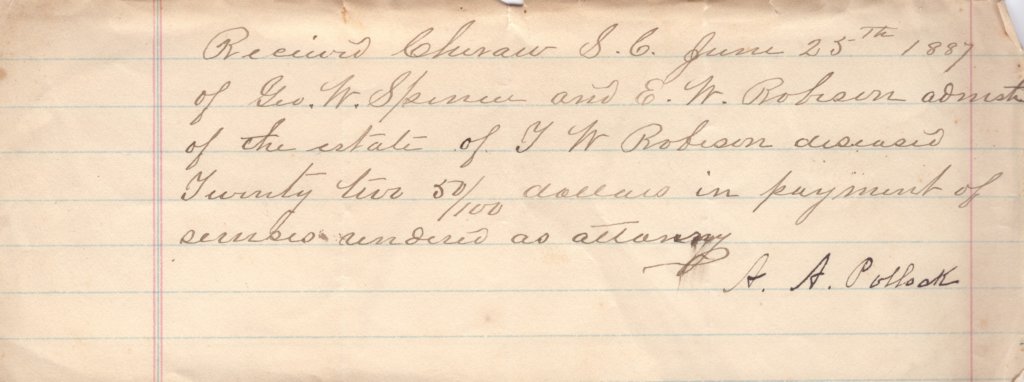 Received Cheraw S.C. June 25th 1887
of Geo. W. Spencer and E. W. Robeson admstr
of the estate of T W Robeson deceased
Twenty two 50/100 dollars in payment of
services rendered as attorney
A. A. Pollock